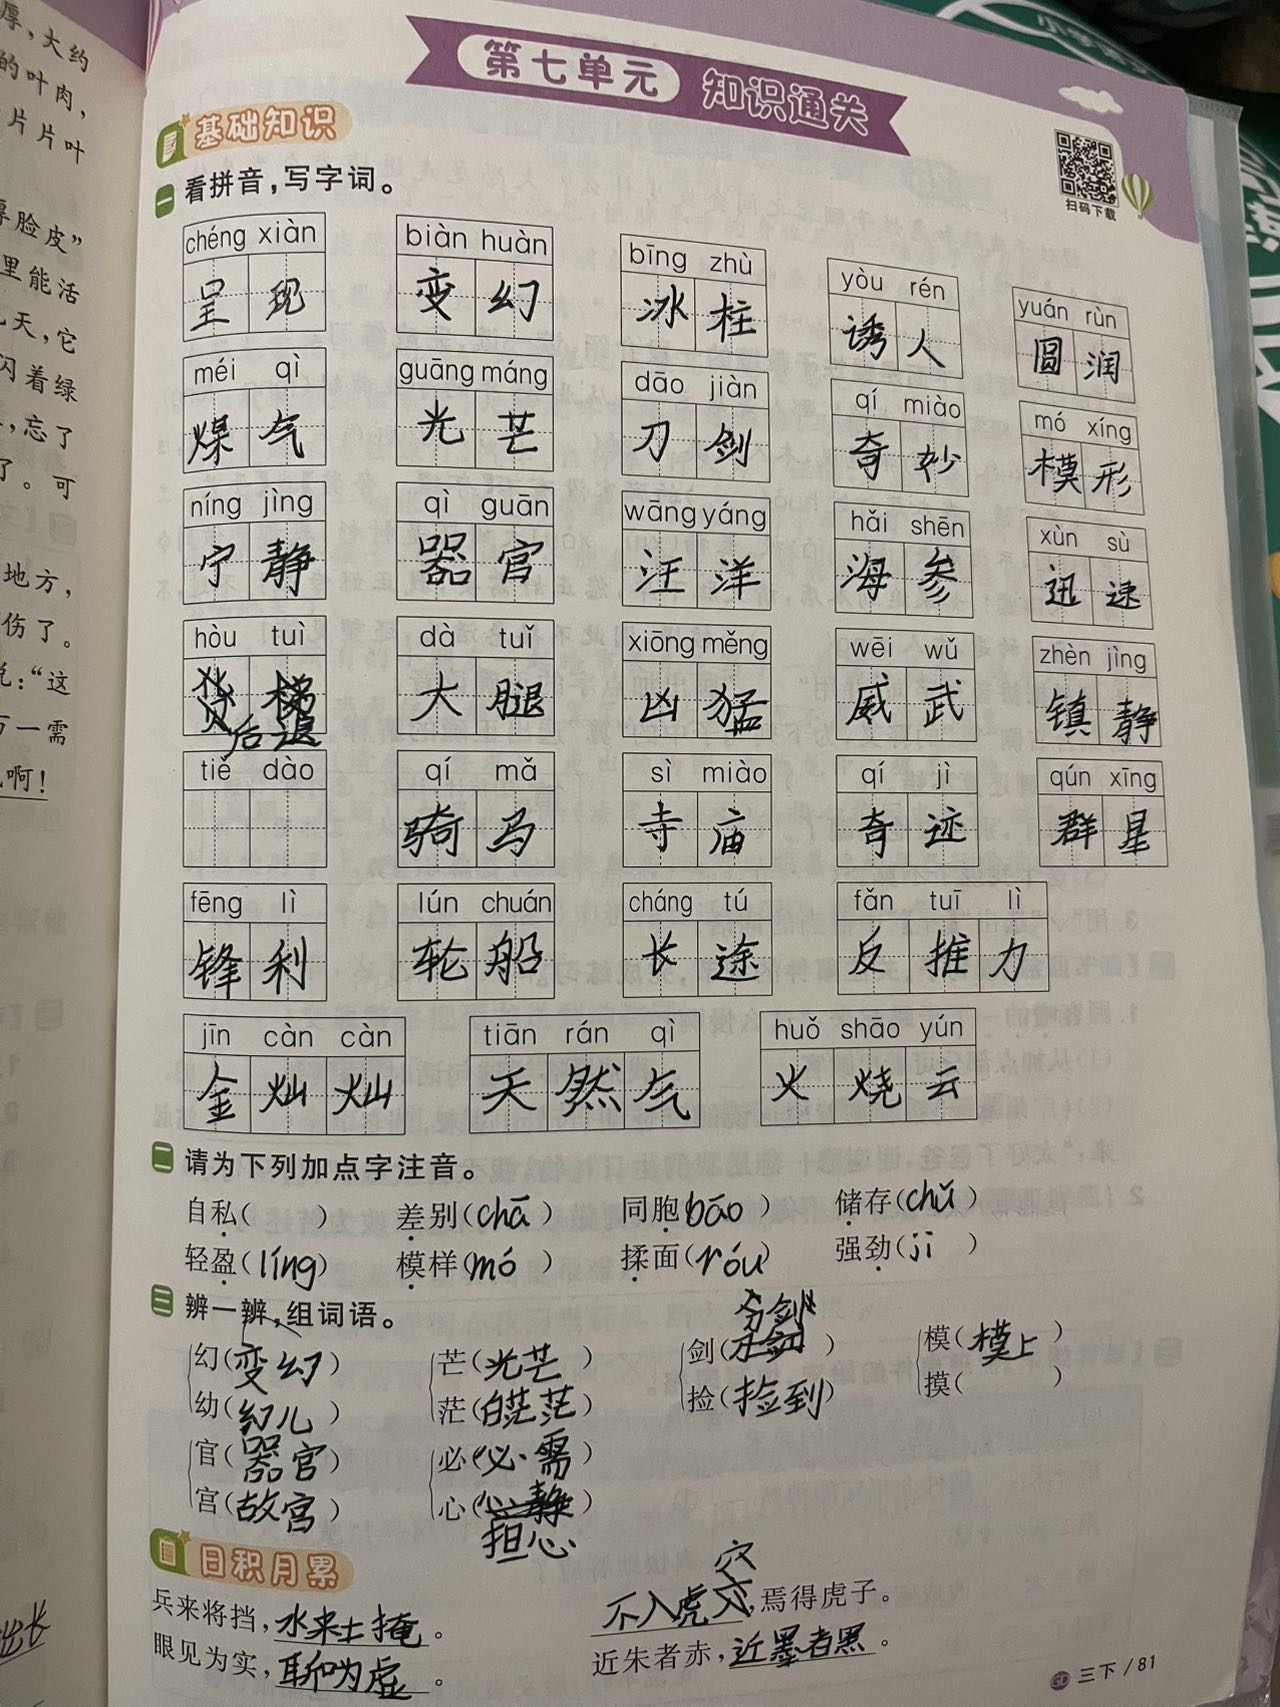 厚,大约
的叶肉,
片片叶
厚脸皮”
里能活
天,它
闪着绿
,忘了
了。可
地方,
伤了。
:“这
万一需
啊!
第七单元 知识通关
基础知识
扫码下载
一 看拼音,写字词。
chéng xiàn biàn huàn bīng zhù yòu rén yuán rùn
呈现 变幻 冰柱 诱人 圆润
méi qì guāng máng dāo jiàn qí miào mó xíng
煤气 光芒 刀剑 奇妙 模形
níng jìng qì guān wāng yáng hǎi shēn xùn sù
宁静 器官 汪洋 海参 迅速
hòu tuì dà tuǐ xiōng měng wēi wǔ zhèn jìng
后退 大腿 凶猛 威武 镇静
tiě dào qí mǎ sì miào qí jì qún xīng
骑马 寺庙 奇迹 群星
fēng lì lún chuán cháng tú fǎn tuī lì
锋利 轮船 长途 反推力
jīn càn càn tiān rán qì huǒ shāo yún
金灿灿 天然气 火烧云
二 请为下列加点字注音。
自私( ) 差别(chā) 同胞(bāo) 储存(chǔ)
轻盈(líng) 模样(mó) 揉面(róu) 强劲(jī)
三 辨一辨,组词语。
幻(变幻) 芒(光芒) 剑(刀剑) 模(模上)
幼(幻儿) 茫(白茫茫) 捡(捡到) 摸( )
官(器官) 必(必需)
宫(故宫) 心(担心)
日积月累
兵来将挡,水来土掩。 不入虎穴,焉得虎子。
眼见为实,耳听为虚。 近朱者赤,近墨者黑。
三下/81